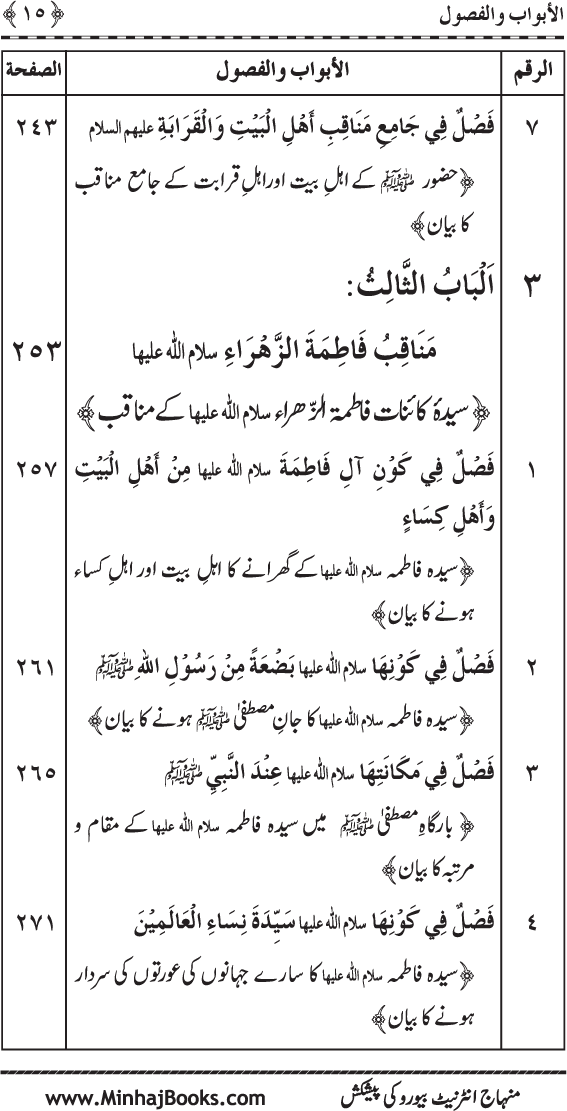 الأبواب والفصول ﴿١٥﴾
الرقم الأبواب والفصول الصفحة
٧ فَصْلٌ فِي جَامِعِ مَنَاقِبِ أَهْلِ الْبَيْتِ وَالْقَرَابَةِ عليهم السلام ٢٤٣
﴿حضور ﷺ کے اہلِ بیت اور اہلِ قرابت کے جامع مناقب
کا بیان﴾
٣ اَلْبَابُ الثَّالِثُ:
مَنَاقِبُ فَاطِمَةَ الزَّهْرَاءِ سلام الله عليها ٢٥٣
﴿سیدۂ کائنات فاطمۃ الزہراء سلام الله عليها کے مناقب﴾
١ فَصْلٌ فِي كَوْنِ آلِ فَاطِمَةَ سلام الله عليها مِنْ أَهْلِ الْبَيْتِ ٢٥٧
وَأَهْلِ كِسَاءٍ
﴿سیدہ فاطمہ سلام الله عليها کے گھرانے کا اہلِ بیت اور اہلِ کساء
ہونے کا بیان﴾
٢ فَصْلٌ فِي كَوْنِهَا سلام الله عليها بَضْعَةً مِنْ رَسُوْلِ اللهِ ﷺ ٢٦١
﴿سیدہ فاطمہ سلام الله عليها کا جانِ مصطفیٰ ﷺ ہونے کا بیان﴾
٣ فَصْلٌ فِي مَكَانَتِهَا سلام الله عليها عِنْدَ النَّبِيِّ ﷺ ٢٦٥
﴿بارگاہِ مصطفیٰ ﷺ میں سیدہ فاطمہ سلام الله عليها کے مقام و
مرتبہ کا بیان﴾
٤ فَصْلٌ فِي كَوْنِهَا سلام الله عليها سَيِّدَةَ نِسَاءِ الْعَالَمِيْنَ ٢٧١
﴿سیدہ فاطمہ سلام الله عليها کا سارے جہانوں کی عورتوں کی سردار
ہونے کا بیان﴾
منہاج انٹرنیٹ بیورو کی پیشکش www.MinhajBooks.com